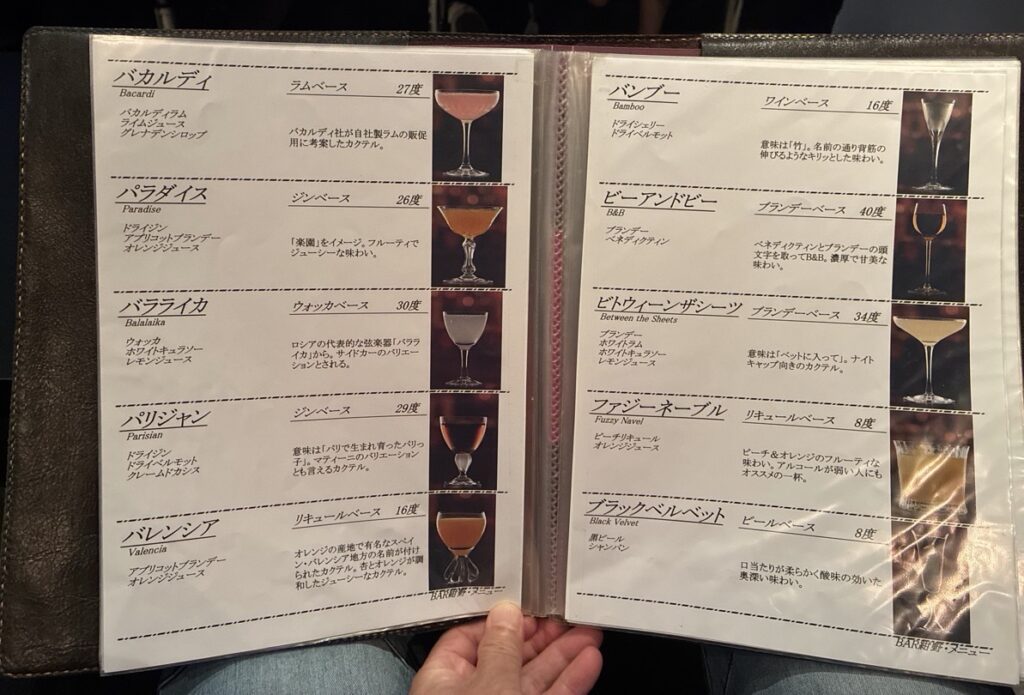 バカルディ
Bacardi
ラムベース 27度
バカルディラム
ライムジュース
グレナデンシロップ
バカルディ社が自社製ラムの販促
用に考案したカクテル。
パラダイス
Paradise
ジンベース 26度
ドライジン
アプリコットブランデー
オレンジジュース
「楽園」をイメージ。フルーティで
ジューシーな味わい。
バラライカ
Balalaika
ウォッカベース 30度
ウォッカ
ホワイトキュラソー
レモンジュース
ロシアの代表的な弦楽器「バララ
イカ」から。サイドカーのバリエー
ションとされる。
パリジャン
Parisian
ジンベース 29度
ドライジン
ドライベルモット
クレームドカシス
意味は「パリで生まれ育ったパリっ
子」。マティーニのバリエーション
とも言えるカクテル。
バレンシア
Valencia
リキュールベース 16度
アプリコットブランデー
オレンジジュース
オレンジの産地で有名なスペイ
ン・バレンシア地方の名前が付け
られたカクテル。杏とオレンジが調
和したジューシーなカクテル。
BAR
・メニュー
バンブー
Bamboo
ワインベース 16度
ドライシェリー
ドライベルモット
意味は「竹」。名前の通り背筋の
伸びるようなキリッとした味わい。
ビーアンドビー
B&B
ブランデーベース 40度
ブランデー
ベネディクティン
ベネディクティンとブランデーの頭
文字を取ってB&B。濃厚で甘美な
味わい。
ビトウィーンザシーツ
Between the Sheets
ブランデーベース 34度
ブランデー
ホワイトラム
ホワイトキュラソー
レモンジュース
意味は「ベットに入って」。ナイト
キャップ向きのカクテル。
ファジーネーブル
Fuzzy Navel
リキュールベース 8度
ピーチリキュール
オレンジジュース
ピーチ＆オレンジのフルーティな
味わい。アルコールが弱い人にも
オススメの一杯。
ブラックベルベット
Black Velvet
ビールベース 8度
黒ビール
シャンパン
口当たりが柔らかく酸味の効いた
奥深い味わい。
BAR
・メニュー